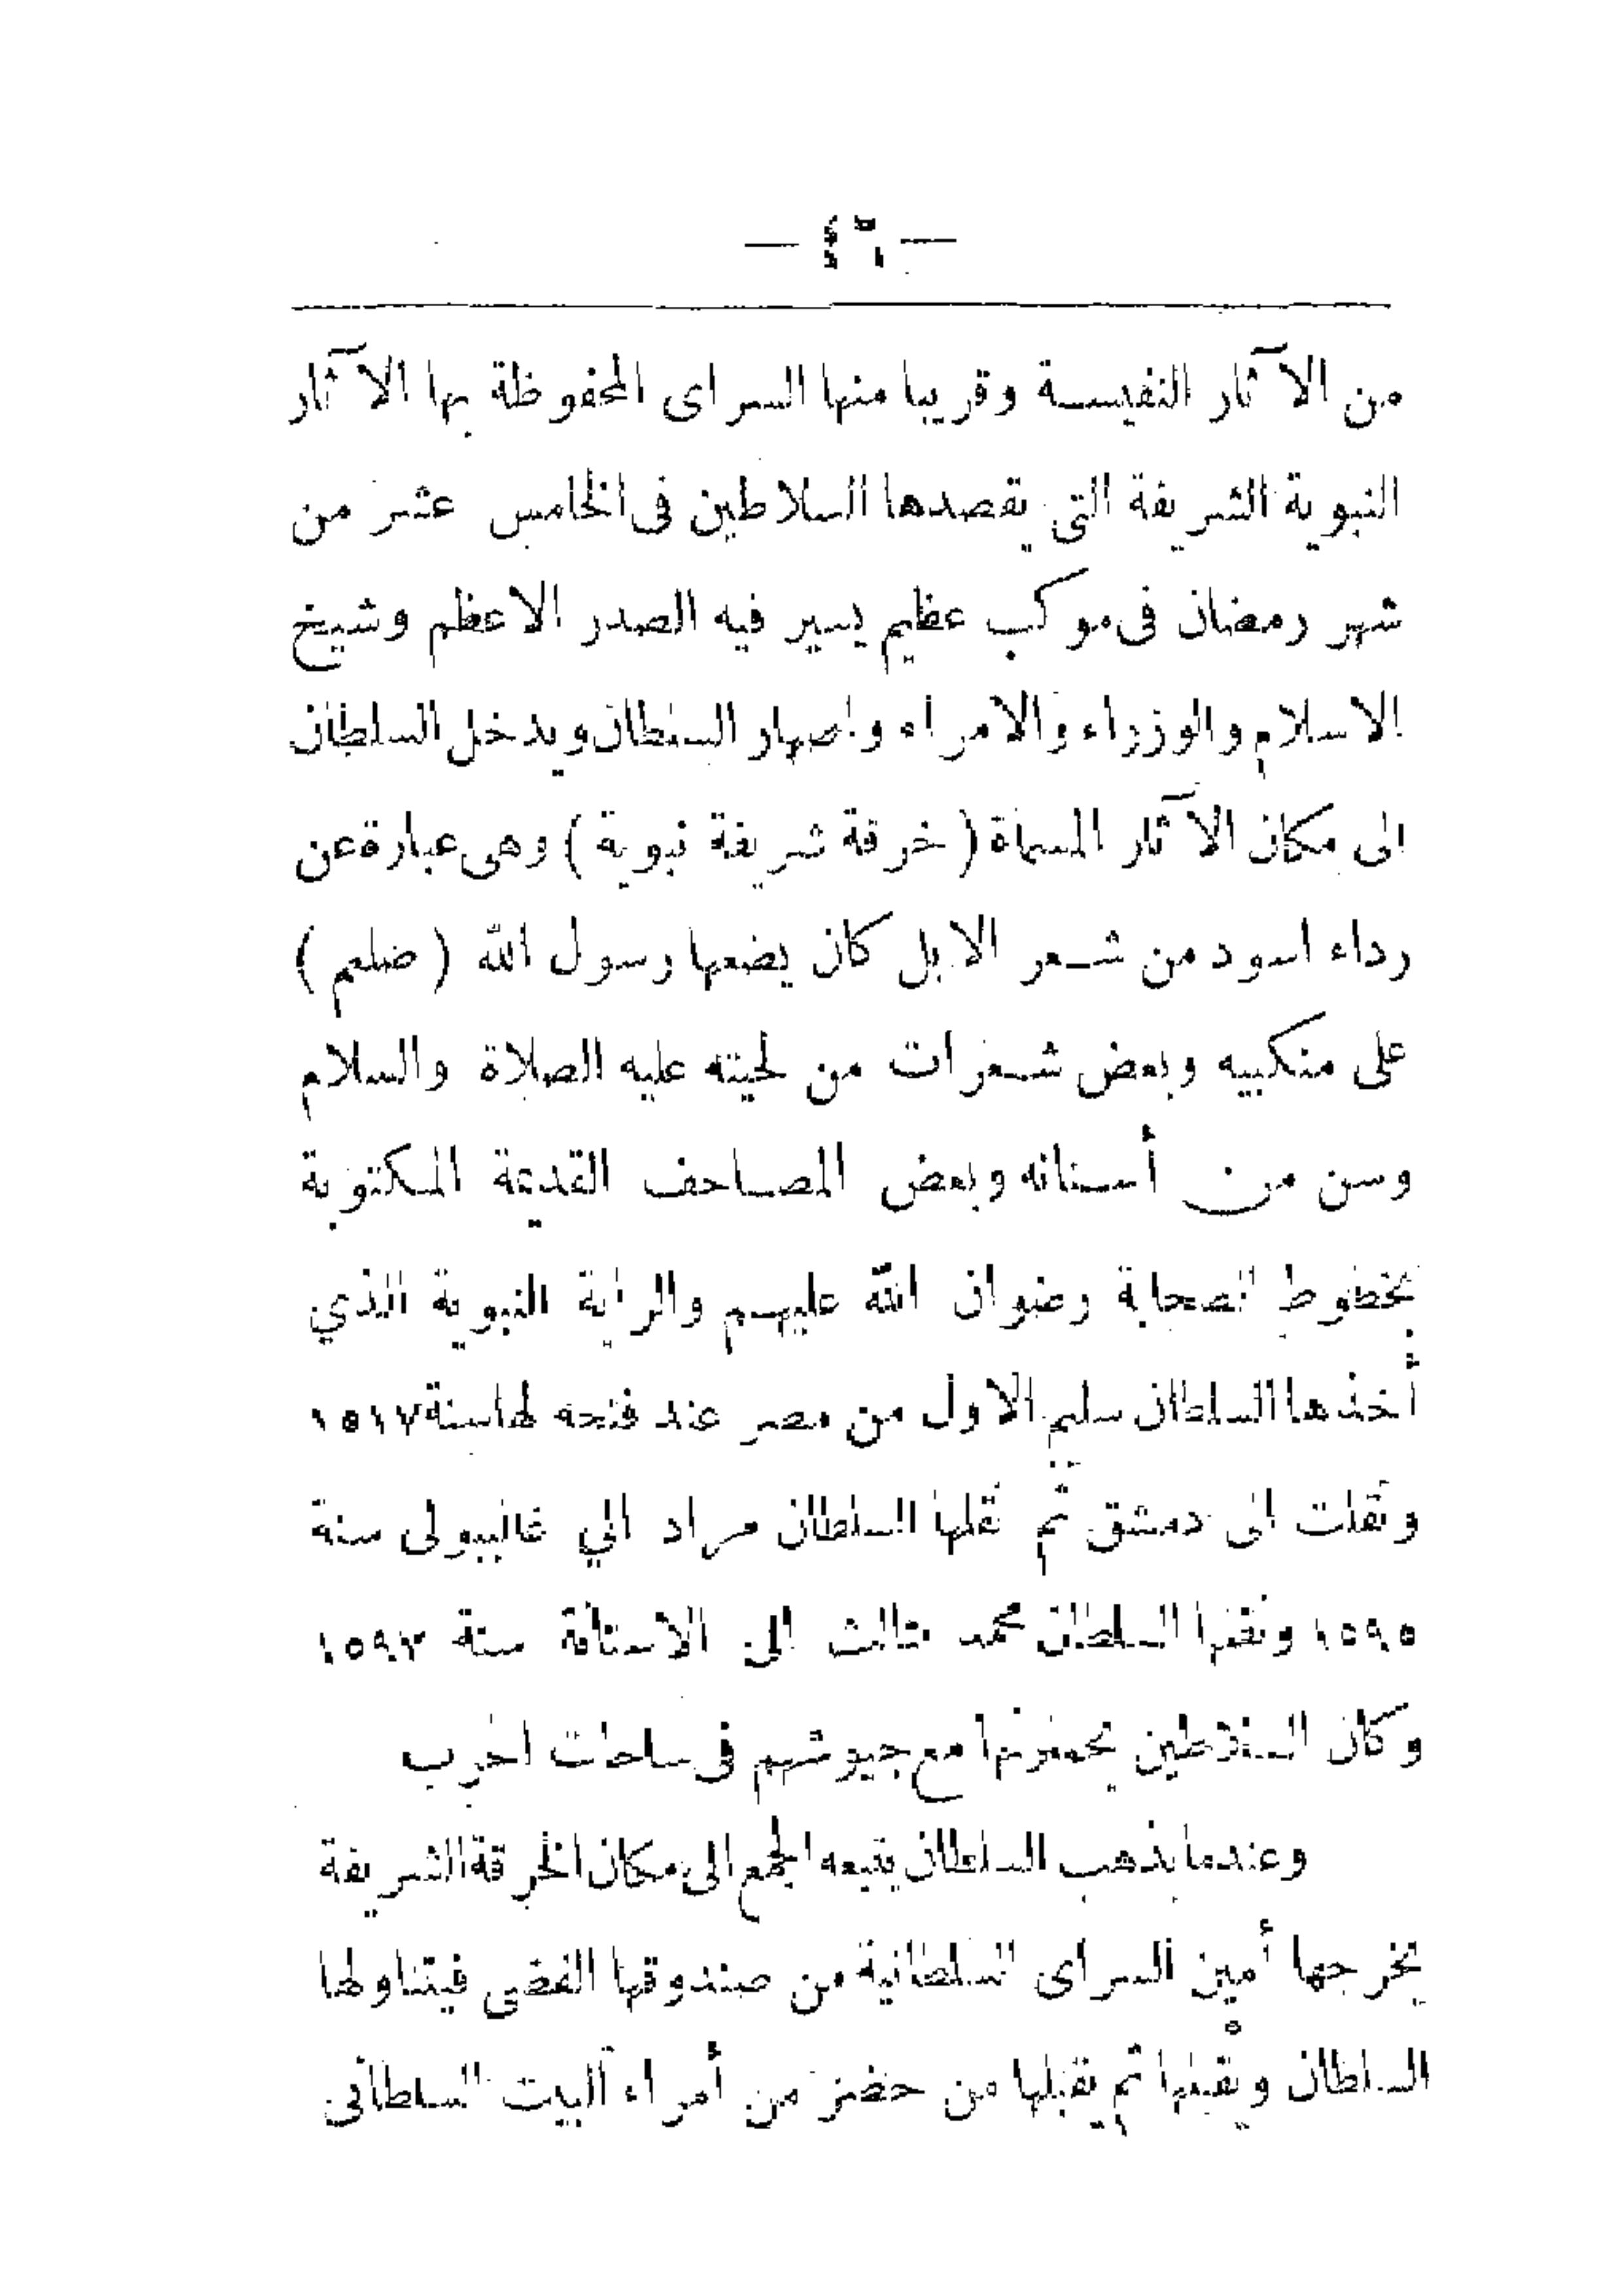 — ٤٦ —
من الآثار النفيسة وقريبا منها السراى المحفوظة بها الآثار
النبوية الشريفة التى يقصدها السلاطين فى الخامس عشر من
شهر رمضان فى موكب عظيم يسير فيه الصدر الاعظم وشيخ
الاسلام والوزراء والامراء واصهار السلطان ويدخل السلطان
الى مكان الآثار المسماة ( خرقة شريفة نبوية ) وهى عبارة عن
رداء اسود من شعر الابل كان يضعها رسول الله ( صلعم )
على منكبيه وبعض شعرات من لحيته عليه الصلاة والسلام
وسن من أسنانه وبعض المصاحف القديمة المكتوبة
بخطوط الصحابة رضوان الله عليهم والراية النبوية الذي
أخذها السلطان سليم الاول من مصر عند فتحه لها سنة ١٥١٧
ونقلت الى دمشق ثم نقلها السلطان مراد الي غاليبولى سنة
١٥٩٥ ونقلها السلطان محمد ثالث الى الاستانة سنة ١٥٩٧
وكان السلاطين يحضرنها مع جيوشهم فى ساحات الحرب
وعندما يذهب السلطان يتبعه الجمع الى مكان الخرقة الشريفة
يخرجها أمين السراى السلطانية من صندوقها الفضى فيتناولها
السلطان ويقبلها ثم يقبلها من حضر من أمراء البيت السلطانى